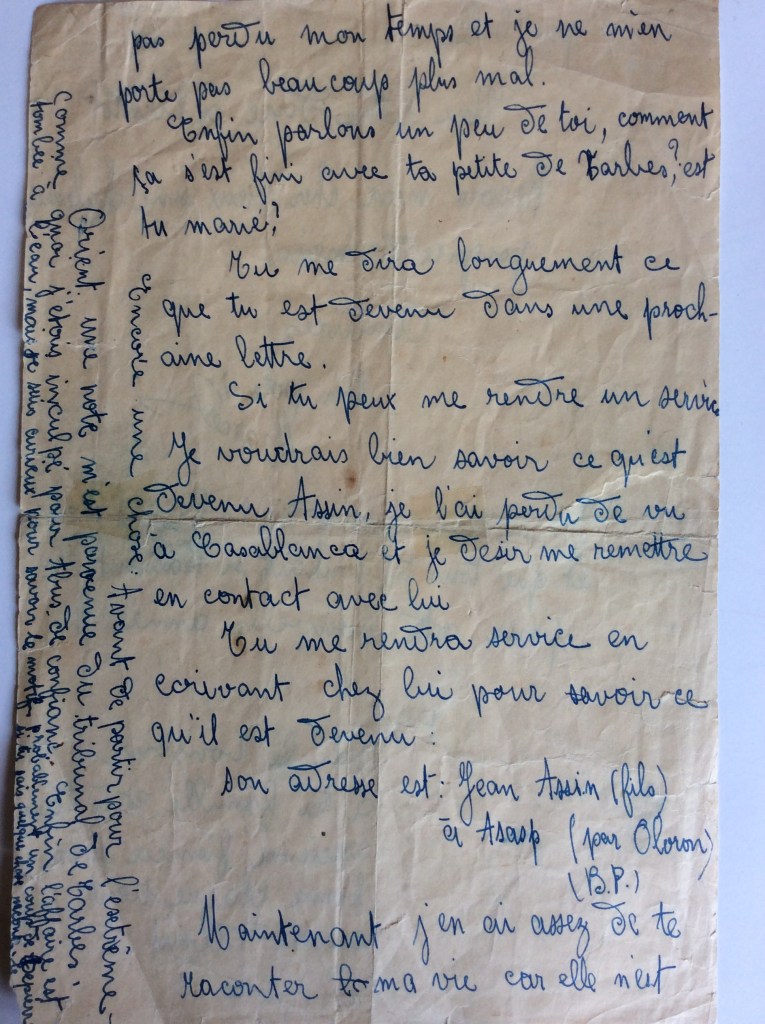 pas perdu mon temps et je ne m'en
porte pas beaucoup plus mal.
Enfin parlons un peu de toi, comment
ça s'est fini avec ta petite de Tarbes,? est
tu marié?
Tu me dira longuement ce
que tu est devenu dans une proch-
aine lettre.
Si tu peux me rendre un service
Je voudrais bien savoir ce qu'est
devenu Assin, je l'ai perdu de vu
à Casablanca et je desir me remettre
en contact avec lui
Tu me rendra service en
ecrivant chez lui pour savoir ce
qu'il est devenu :
son adresse est : Jean Assin (fils)
à Asasp (par Oloron)
(B.P.)
Maintenant j'en ai assez de te
raconter ma vie car elle n'est
Encore une chose : Avant de partir pour l'extrême-
Orient une note m'est parvenue du tribunal de Tarbes,
Comme quoi j'étais inculpé pour Abus de confiance. Enfin l'affaire est
tombée à l'eau, mais je suis curieux pour savoir le motif, probablement un coup de
si tu sais quelque chose